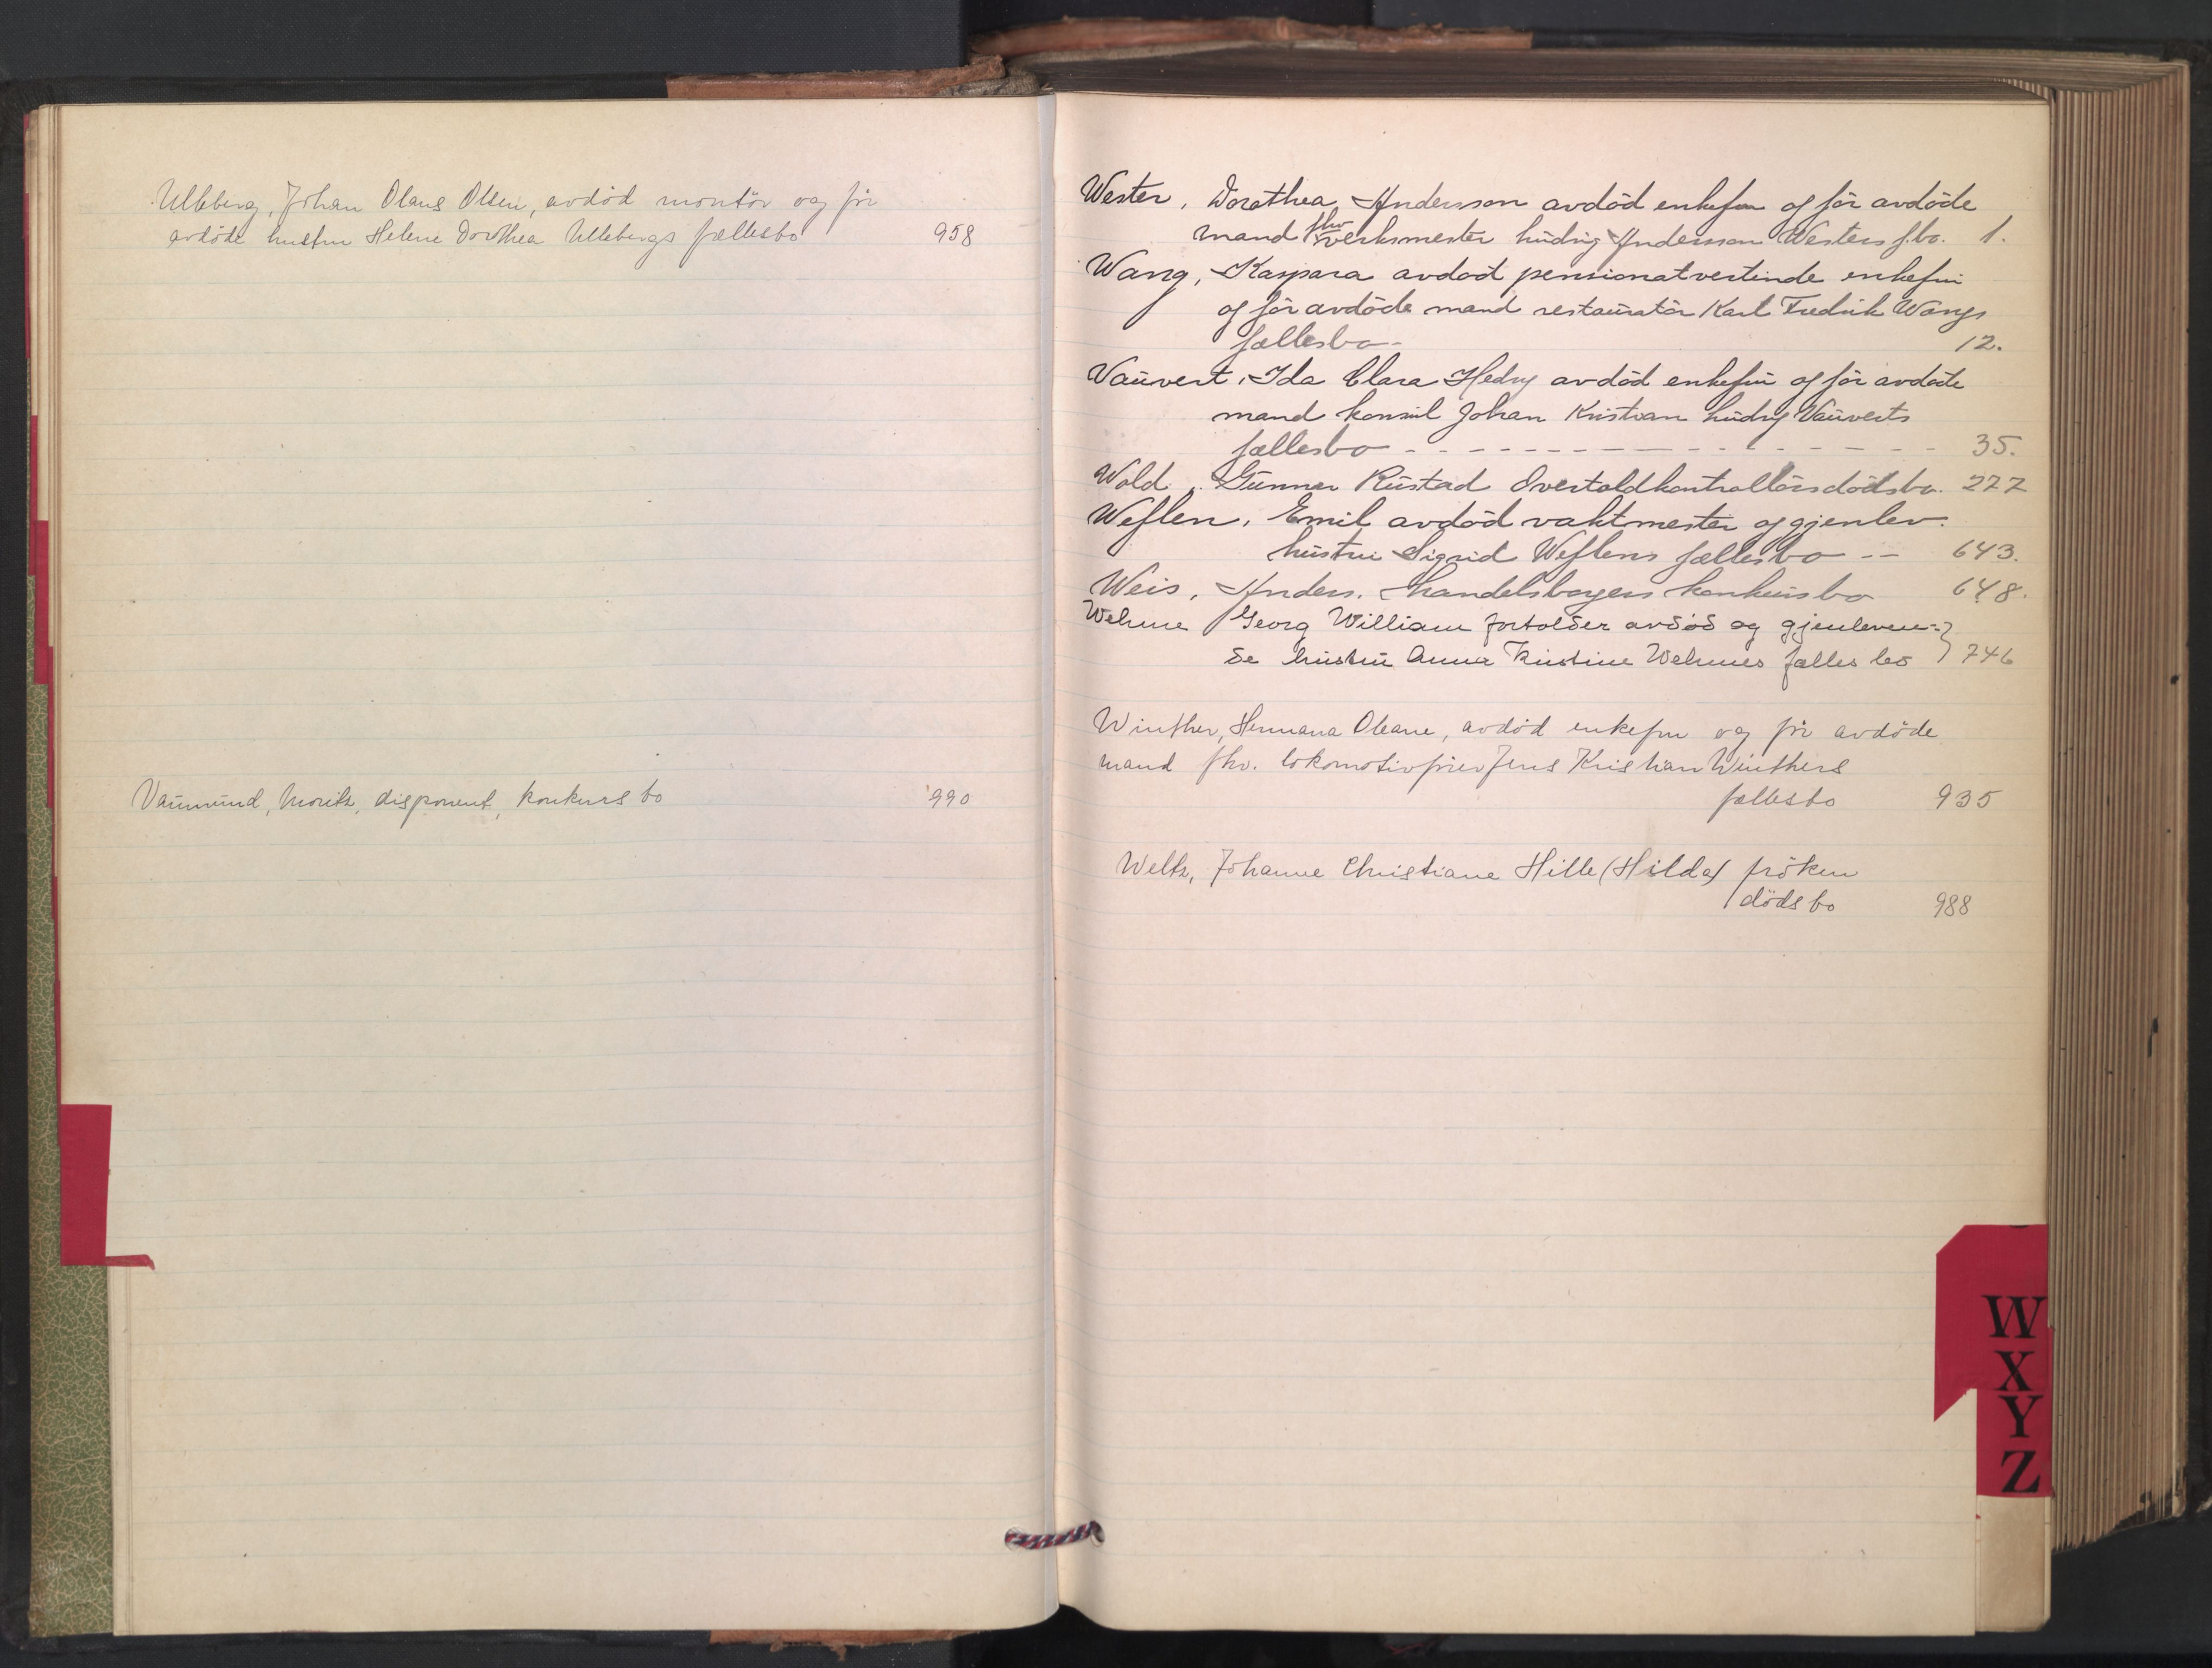 Ulleberg, Johan Olaus Olsen, avdöd montör og för
avdöde hustru Helene Dorothea Ullebergs fællesbo 958
Vaumund, Moritz, disponent, konkursbo 990
Wester, Dorothea Andersson avdöd enkefru og för avdöde
mand fhv verksmester Ludvig Andersson Westers f.bo. 1.
Wang, Kaspara avdød pensionatvertinde enkefru
og för avdöde mand restauratör Karl Fredrik Wangs
fællesbo- 12.
Vauvert, Ida Clara Hedvig avdöd enkefru og för avdöde
mand konsul Johan Kristian Ludvig Vauverts
fællesbo - - - - - - - - - - - - - - - 35.
Wold, Gunnar Rustad Overtoldkontrollörs dödsbo. 277
Weflen, Emil avdöd vaktmester og gjenlev.
hustru Sigrid Weflens fællesbo -- 643.
Weis, Anders. handelsborgers konkursbo 648.
Wehme Georg William forvalder avdöd og gjenleven=
de hustru Anna Kristine Wehmes fælles bo } 746
Winther, Hermana Oleane, avdöd enkefru og för avdöde
mand fhv. lokomotivfører Jens Kristian Winthers
fællesbo 935
Weltz, Johanne Christiane Hille (Hilda) fröken
dödsbo 988
W
X
Y
Z